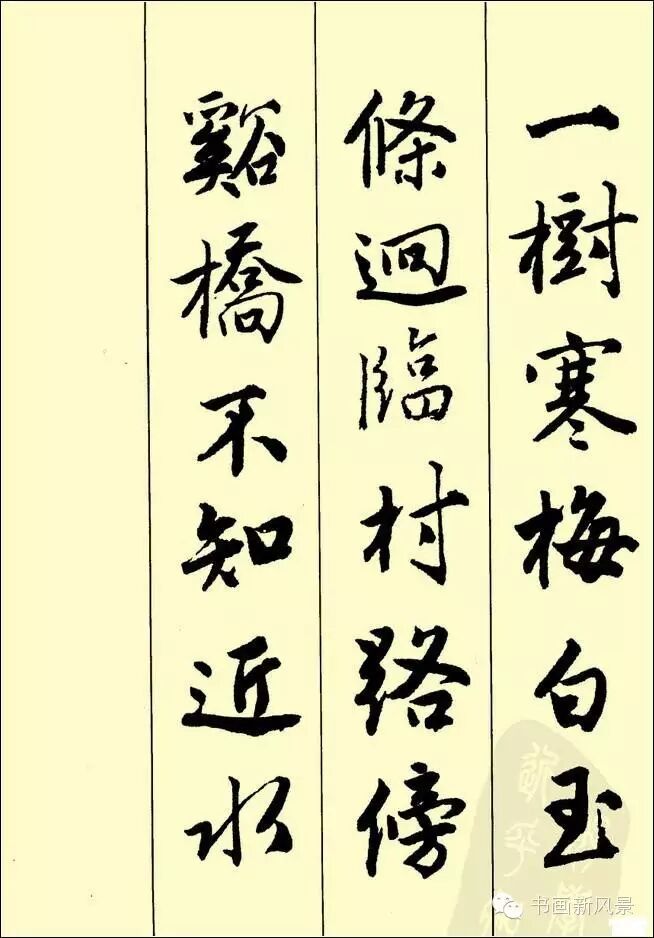 一樹寒梅白玉
條迥臨村路傍
谿橋不知近水
书画新风景